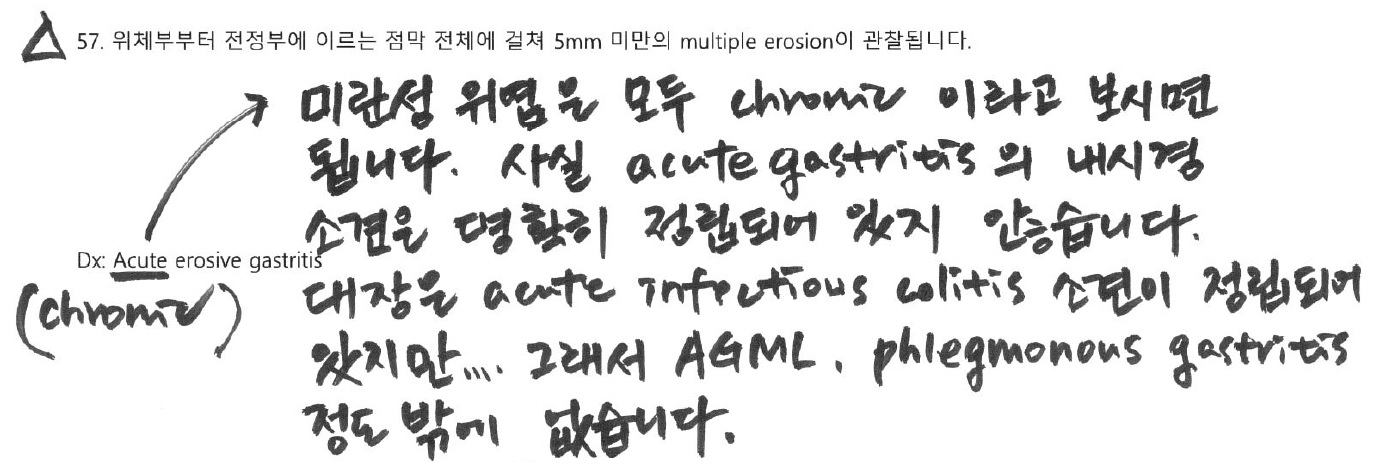 57. 위체부부터 전정부에 이르는 점막 전체에 걸쳐 5mm 미만의 multiple erosion이 관찰됩니다.
미란성 위염은 모두 chronic 이라고 보시면
됩니다. 사실 acute gastritis의 내시경
소견은 명확히 정립되어 있지 안습니다.
Dx: Acute erosive gastritis
(chronic)
대장은 acute infectious colitis 소견이 정립되어
있지만.... 그래서 AGML, phlegmonous gastritis
정도 밖에 없습니다.